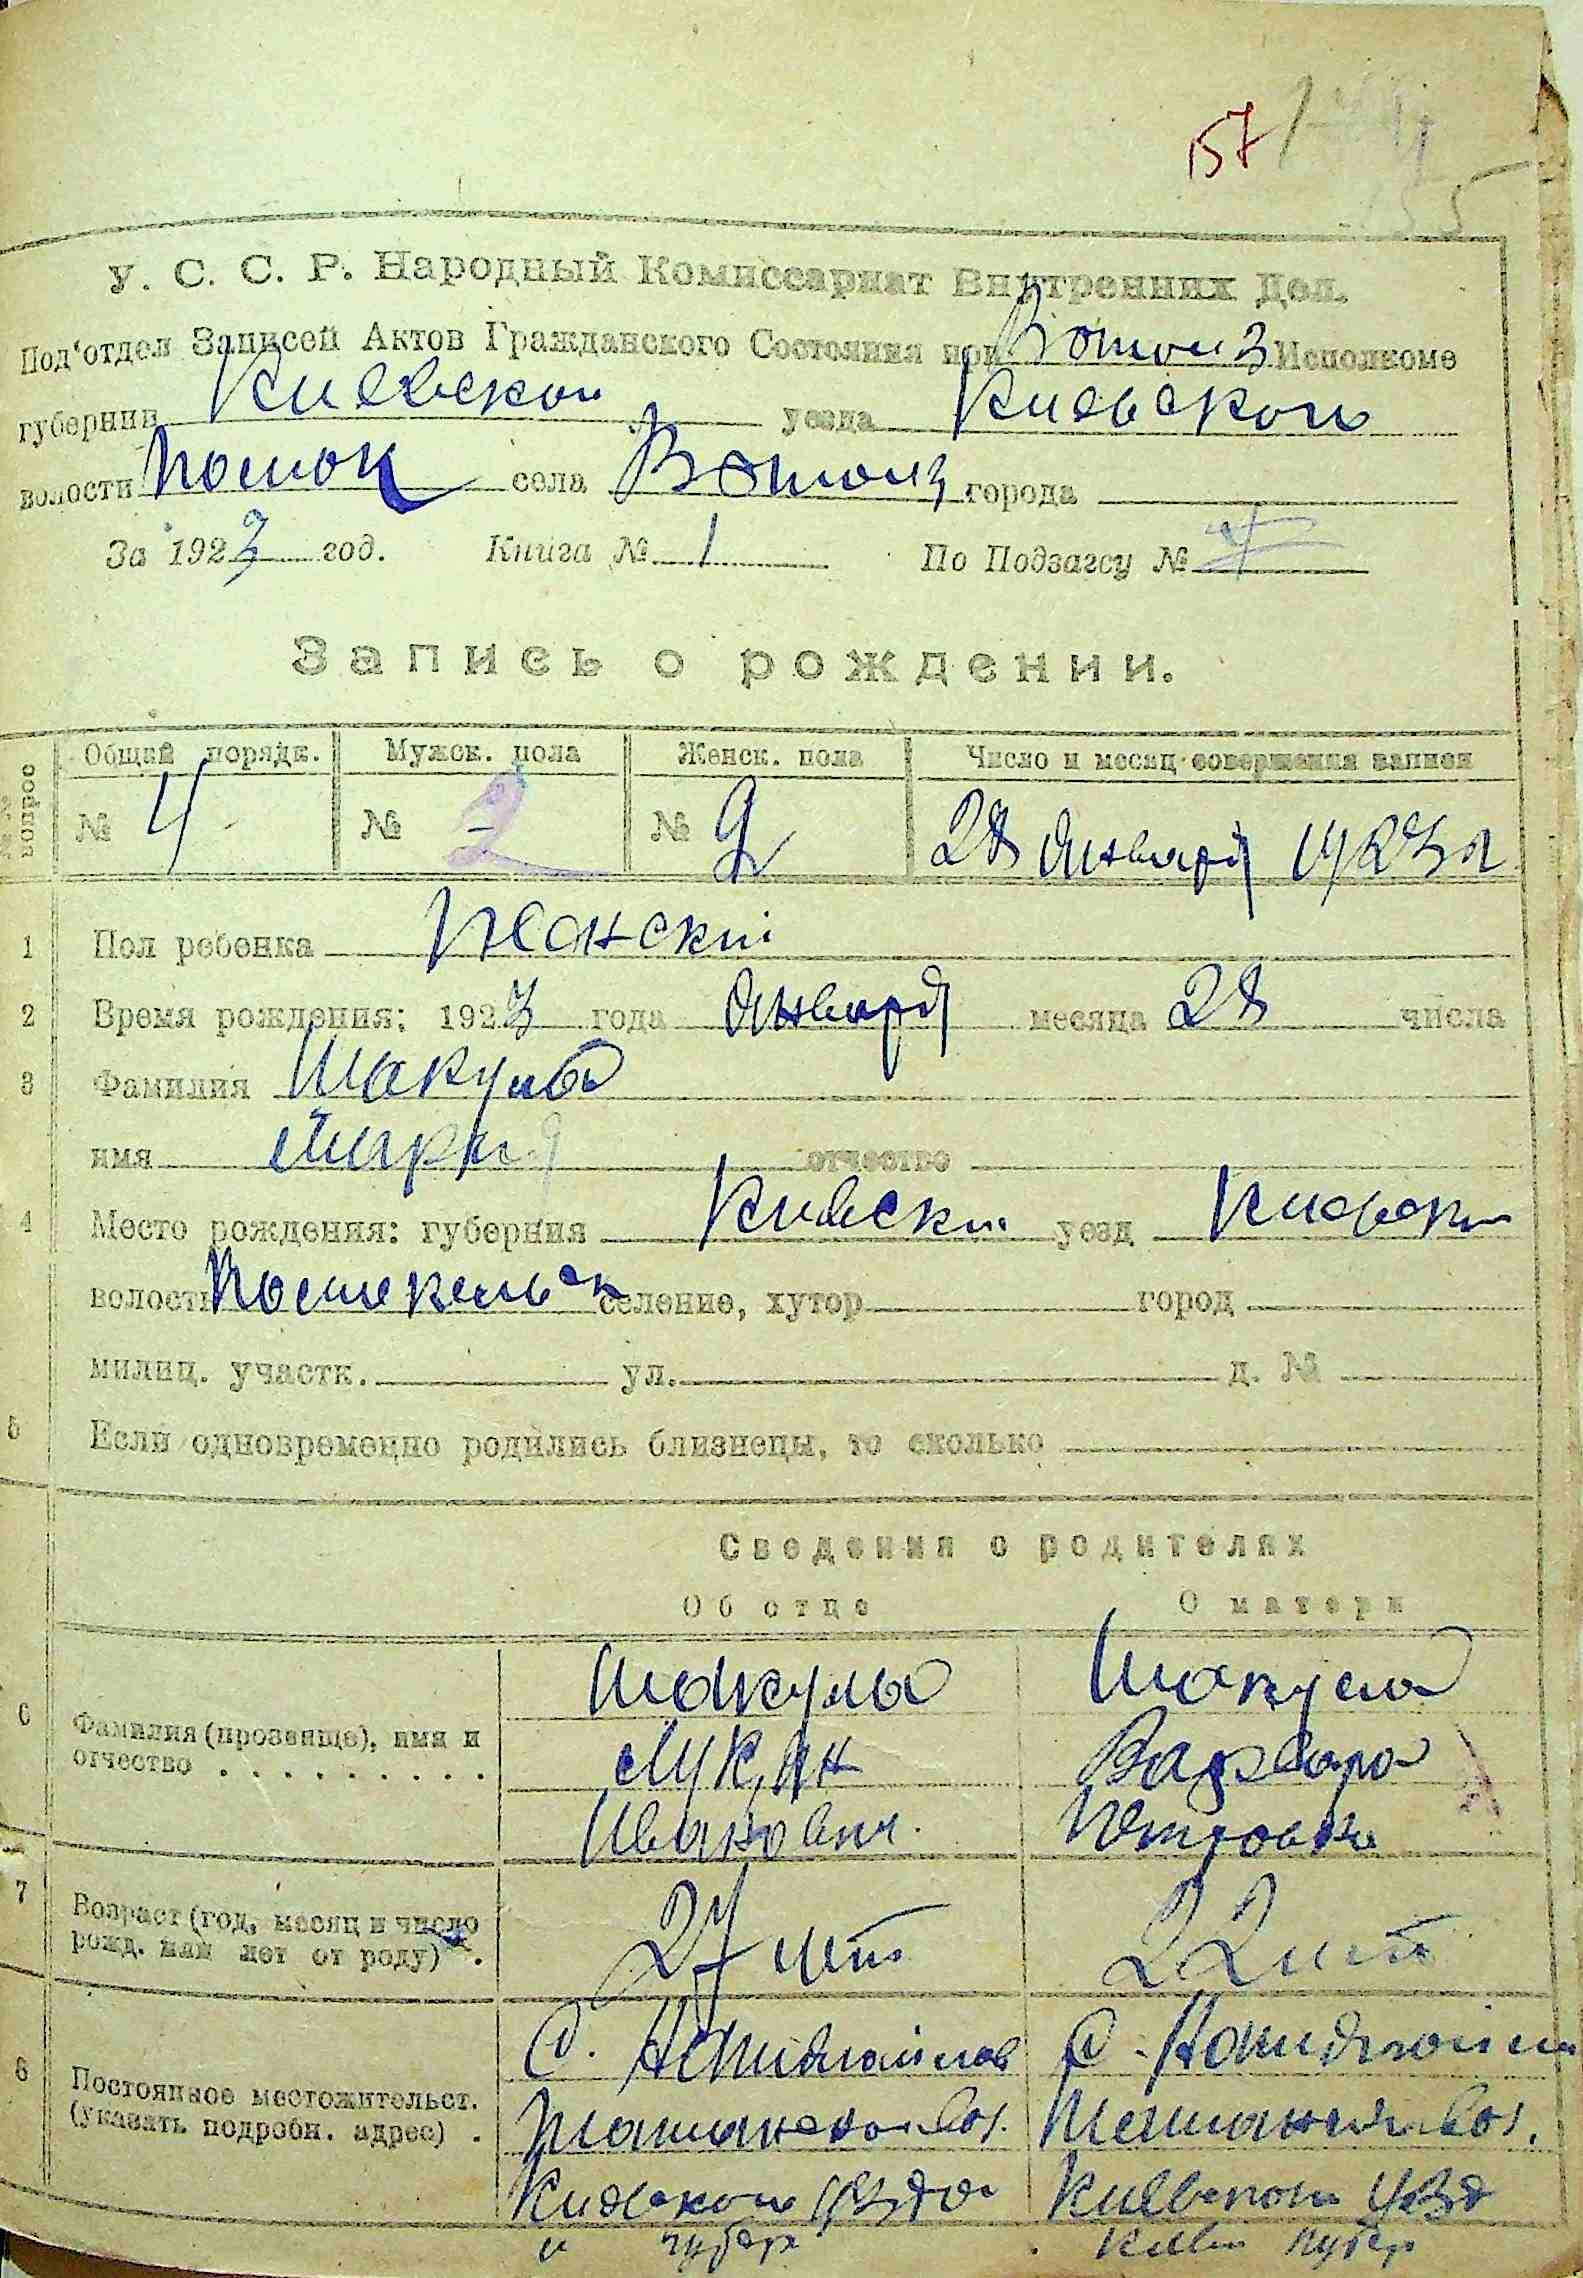 157
У. С. С. Р. Народный Комиссариат Внутренних Дел.
Под'отдел Записей Актов Гражданского Состояния при Исполкоме
губернии Киевской уезда Киевского
волости села города
За 1923 год. Книга № 1 По Подзагсу №
Запись о рождении.
Общий порядк. Мужск. пола Женск. пола Число и месяц совершения записи
№ 4 № № 2 28 Января 1923 г
1 Пол ребенка Женский
2 Время рождения: 1923 года Января месяца 28 числа
3 Фамилия Шакула
имя Мария отчество
4 Место рождения: губерния Киевски уезд Киевски
волость селение, хутор город
милиц. участк. ул. д. №
5 Если одновременно родились близнецы, то сколько
Сведения о родителях
Об отце О матери
6 Фамилия (прозвище), имя и отчество Шакула Шакула
Лукян Варвара
Иванович. Петровна
7 Возраст (год, месяц и число рожд. или лет от роду) 27 лет 22 лет
8 Постоянное местожительст. (указать подробн. адрес) С. С.
вол. вол.
Киевского уезда Киевского уезд
и губер Киев губер